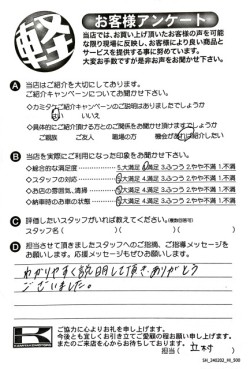 軽
お客様アンケート
当店では、お買い上げ頂いたお客様の声を可能
な限り現場に反映し、お客様により良い商品と
サービスを提供する事に努めています。
大変お手数ですが是非お声をお聞かせ下さい。
A 当店はご紹介を大切にしております。
ご紹介キャンペーンについてお聞かせ下さい。
◇カミタケご紹介キャンペーンのご説明はありましたでしょうか
はい いいえ
◇具体的にご紹介頂ける方とのご関係をお聞かせ頂けますでしょうか
ご親族 ご友人 職場の方 機会があれば紹介したい
B 当店を実際にご利用になった印象をお聞かせ下さい。
◇総合的な満足度………………5.大満足 4.満足 3.ふつう 2.やや不満 1.不満
◇スタッフの対応………………5.大満足 4.満足 3.ふつう 2.やや不満 1.不満
◇お店の雰囲気、清掃…………5.大満足 4.満足 3.ふつう 2.やや不満 1.不満
◇納車時のお車の状態…………5.大満足 4.満足 3.ふつう 2.やや不満 1.不満
C 評価したいスタッフがいれば教えてください。(複数回答可)
スタッフ名( )( )( )
D 担当させて頂きましたスタッフへのご指摘、ご指導メッセージを
お願いします。応援メッセージもぜひお願いします。
わかりやすく説明して頂き、ありがとう
ございました。
K
ご協力に心よりお礼を申し上げます。
今後とも宜しくお引き立てご愛顧の程お願い申し上げます。
またのご来店を心からお待ちしております。
担当( 立村 )
SH_240202_MI_500